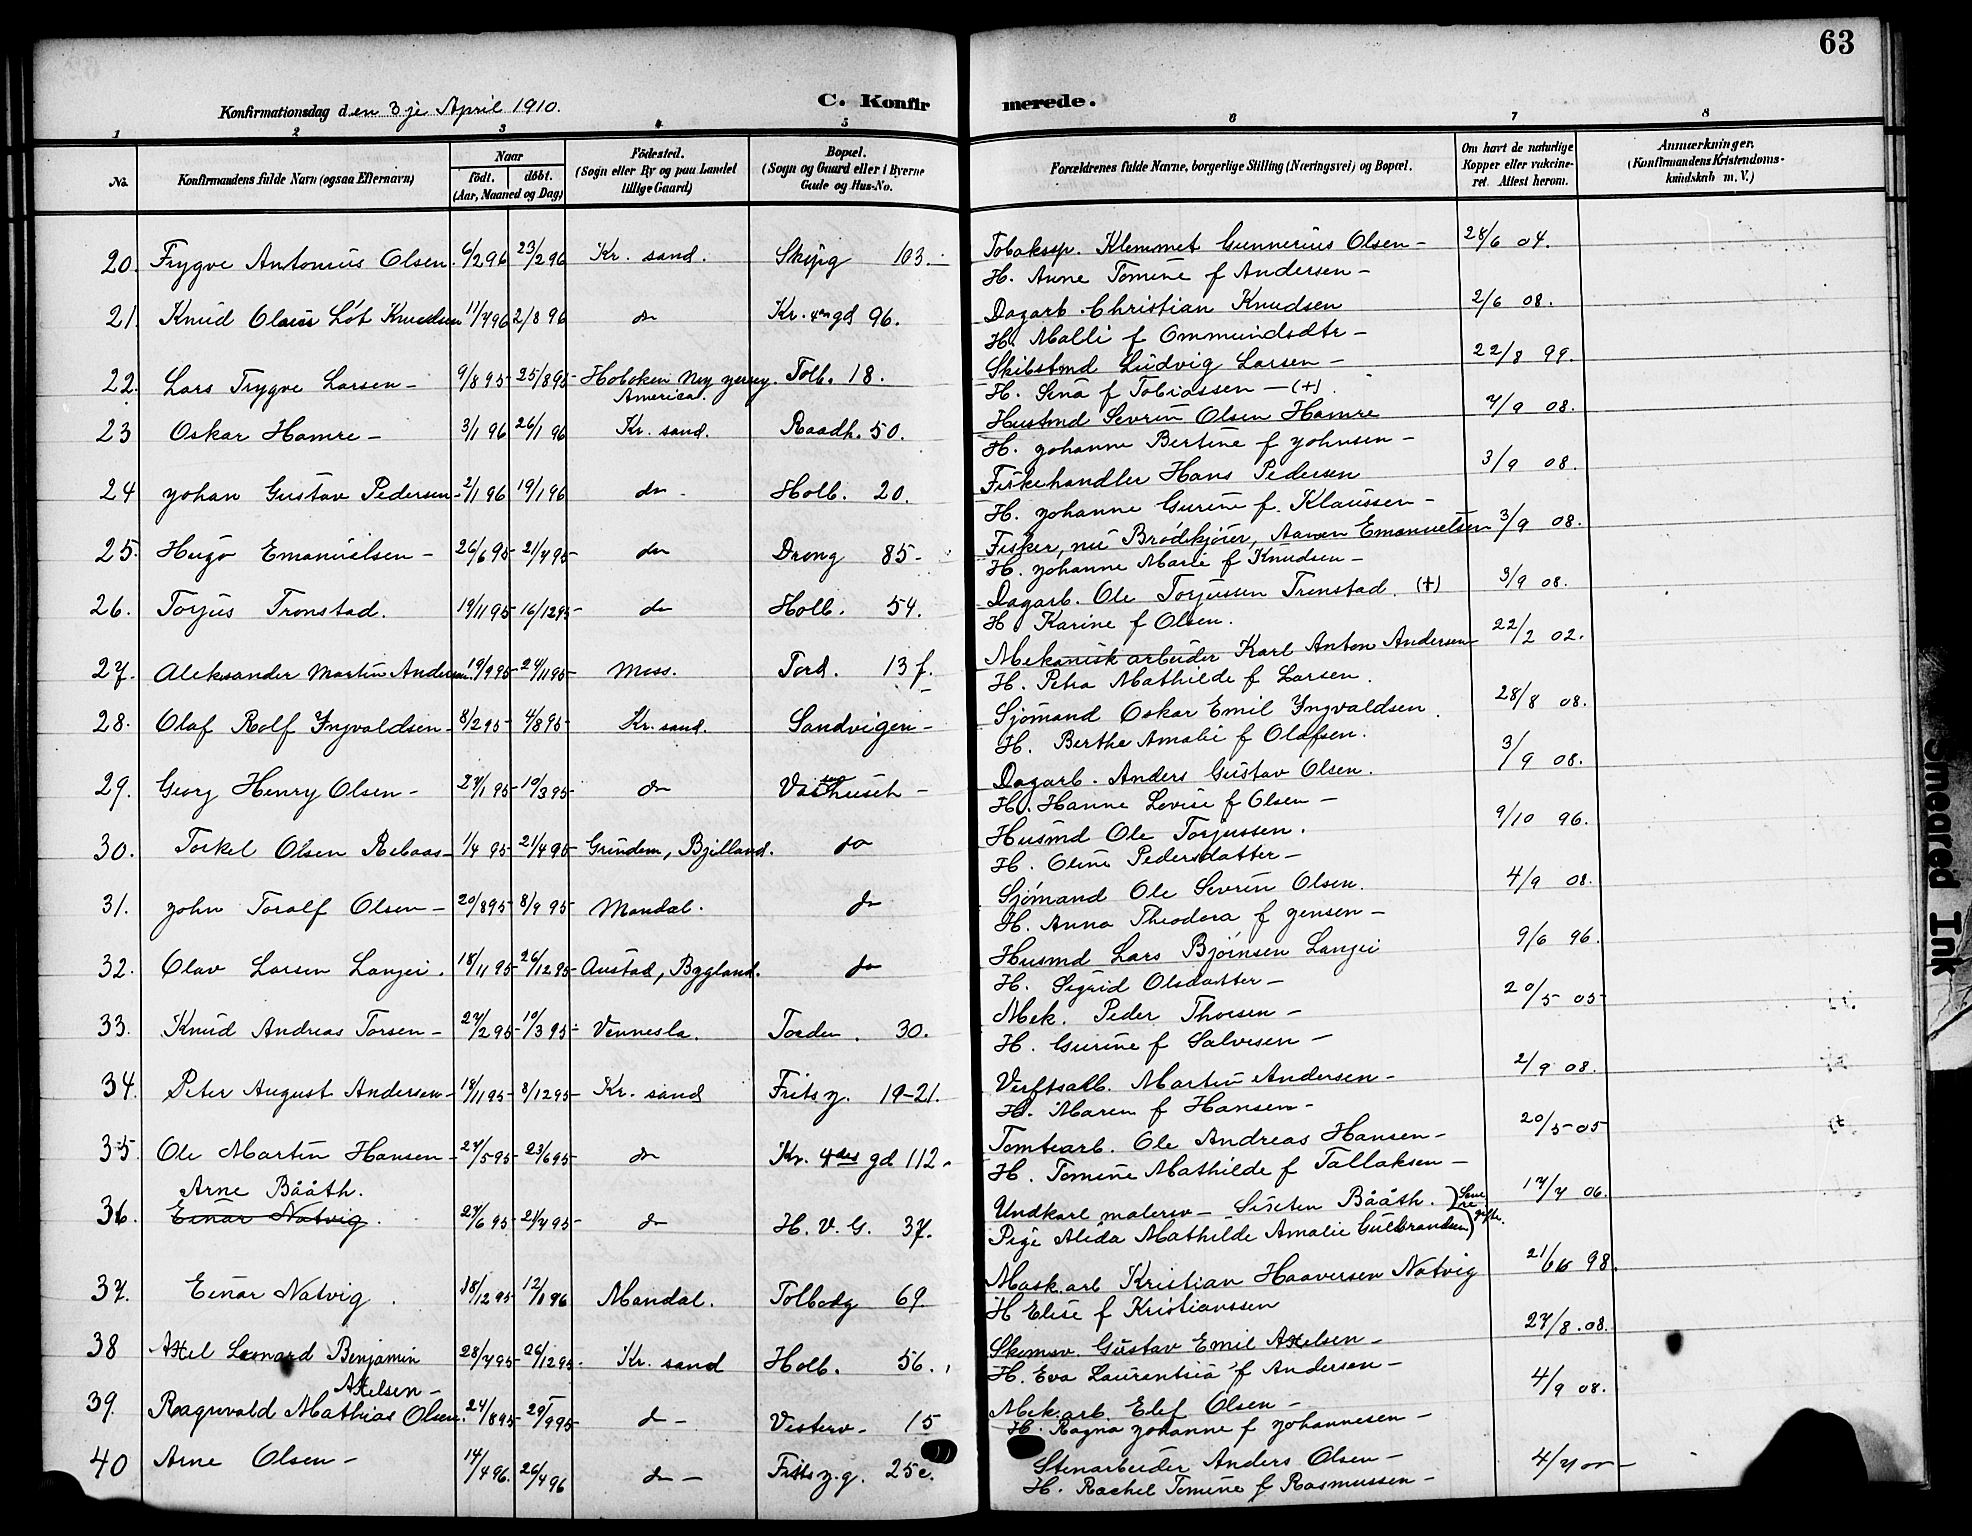 63
Konfirmationsdag den 3je April 1910.
C. Konfirmerede.
1 2 3 4 5 6 7 8
No. Konfirmandens fulde Navn (ogsaa Efternavn) Naar født. døbt. (Aar, Maaned og Dag) Fødested. (Sogn eller By og paa Landet tillige Gaard) Bopæl. (Sogn og Gaard eller i Byerne Gade og Hus-No. Forældrenes fulde Navne, borgerlige Stilling (Næringsvei) og Bopæl. Om havt de naturlige Kopper eller vakcineret. Attest herom. Anmærkninger. (Konfirmandens Kristendomskundskab m. V.)
20. Trygve Antonius Olsen. 6/2 96 23/2 96 Kr. sand. 103. Tobaksp. Klemmet Gunnerius Olsen - 28/6 04.
H. Anne Tomine f Andersen -
21. Knud Olaus Løt Knudsen 11/7 96 2/8 96 do Kr. 4de gd 96. Dagarb. Christian Knudsen 2/6 08.
H. Malli f Ommundsdtr -
22. Lars Trygve Larsen - 9/8 95 - 25/8 95 - Hoboken Ny yersey. America. Tolb. 18. Skibstmd Ludvig Larsen - 22/8 99.
H. Sina f Tobiassen - (+).
23 Oskar Hamre - 3/1 96 26/1 96 Kr. sand. Raadh. 50. Hustmd Sevrin Olsen Hamre 7/9 08.
H. Johanne Bertine f Johnsen -
24 Johan Gustav Pedersen - 2/1 96 19/1 96 do - Holb. 20. Fiskehandler Hans Pedersen 3/9 08.
H. Johanne Gurine f. Klaussen -
25. Hugo Emanuelsen - 26/6 95 - 21/7 95 - do Drong 85 - Fisker, nu Brødkjører, Aanen Emanuelsen 3/9 08.
H. Johanne Marie f Knudsen -
26. Torjus Tronstad. 19/11 95 - 16/12 95 - do Holb. 54. Dagarb. Ole Torjussen Tronstad. (+) 3/9 08.
H. Karine f Olsen.
27. Aleksander Martin Andersen. 19/9 95 - 24/11 95 - Moss. Tord. 13 f. Mekanisk arbeider Karl Anton Andersen - 22/2 02.
H. Petra Mathilde f Larsen.
28. Olaf Rolf Yngvaldsen - 8/2 95 - 4/8 95 - Kr. sand. Sandvigen - Sjømand Oskar Emil Yngvaldsen. 28/8 08.
H. Berthe Amalie f Olafsen.
29. Georg Henry Olsen - 27/1 95 - 10/3 95 - do Dagarb. Anders Gustav Olsen. 3/9 08.
H. Hanne Lovise f Olsen -
30. Torkel Olsen Rebaas - 1/4 95 21/4 95 - Grindem, Bjelland. do Husmd Ole Torjussen. 9/10 96.
H. Oline Pedersdatter -
31. John Toralf Olsen - 20/8 95 - 8/9 95 - Mandal. do Sjømand Ole Sevrin Olsen. 4/9 08.
H. Anna Theodora f Jensen -
32. Olav Larsen Langei. 18/11 95 - 26/12 95 - Austad, Bygland. do Husmd Lars Bjørnsen Langei 9/6 96.
H. Sigrid Olsdatter -
33. Knud Andreas Torsen - 27/2 95 - 10/3 95 - Vennesla. Torden. 30. Mek. Peder Thorsen - 20/5 05 -
H. Gurine f Salvesen -
34. Peter August Andersen - 18/11 95 - 8/12 95 - Kr. sand Frits J. 19-21. Verftsarb. Martin Andersen - 2/9 08.
H. Maren f Hansen -
35. Ole Martin Hansen - 27/5 95 - 23/6 95 - do Kr. 4des gd 112. Tomtearb. Ole Andreas Hansen - 20/5 - 05
H. Tomine Mathilde f Tallaksen -
Arne Bååth.
36. Einar Natvig. 27/6 95 - 21/7 95 - do H. V. G. 37. Undkarl malersv - Bååth. 17/7 06.
Pige Alida Mathilde Amalie Gulbrandsen) Sene re gifte.
37. Einar Natvig. 18/12 95 - 12/1 96 Mandal. Tolbodg 69. Mask. arb Kristian Haaversen Natvig 98.
H Elise f Kristianssen
38 Axel Leonard Benjamin Axelsen - 28/7 95 - 26/12 95 - Kr. sand Holb. 56. Skomsv. Gustav Emil Axelsen - 27/8. 08.
H. Eva Laurentsia f Andersen -
39. Ragnvald Mathias Olsen. 24/8 95 - 29/9 95 - do - Vesterv - 15 Mek. arb. Elef Olsen - 4/9 08.
H. Ragna Johanne f Johannesen -
40 Arne Olsen - 14/4 96. 26/4 96 do - Frits J. g. 25 c. Stenarbeider Anders Olsen - 4/7 00 -
H. Rachel Tomine f Rasmussen -
Smeared Ink